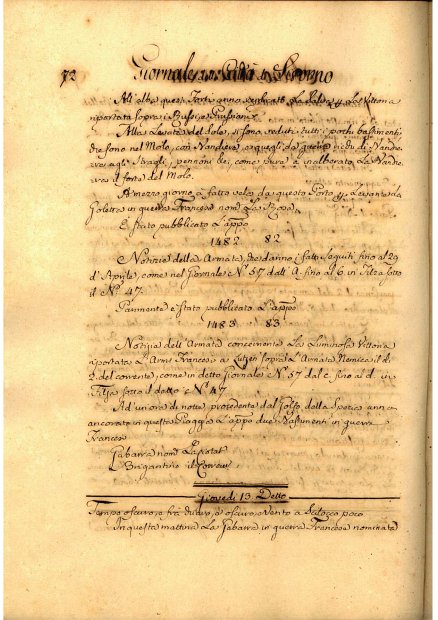 72 Giornale Città Livorno
All'alba questi Forti anno La Salva La Vittoria
riportata sopra i Russi, e Prussiani
Alla Levata del Sole, si sono veduti tutti i pochi bastimenti
che sono nel Molo, con Bandiera, e quegli da guerra di Bandie-
re agli Stragli, pennoni &c, come pure à inalberato La Bandie-
ra il forte del Molo.
A mezzo giorno à fatto vela da questo Porto p Levante La
Goletta in guerra Francese nom.ᵗᵃ La Rosa
È stato pubblicato L'app.º
1482 82
Notizie della Armata, che danno i fatti seguiti fino al 29
d'Aprile, come nel Giornale N.º 57 dall' A. fino al 6 in Filza sotto
il N.º 47.
Parimente è stato pubblicato L'app.º
1483 83
Notizie dell'Armata concernente La Luminosa Vittoria
riportata L'Armi Francesi a Lutzen sopra L'Armata Nemica il dì
2. del corrente, come in detto Giornale N.º 57 dal c. fino al d. in
Filza sotto il detto N.º 47
Ad un'ora di notte procedente dal Golfo della Spezia anno
ancorato in questa Piaggia L'app.º due Bastimenti in guerra
Francesi
Gabarra nom.ᵗᵃ
Brigantino il
Giovedì 13 Detto
Tempo oscuro, e frà chiaro, e oscuro, Vento a Scilocco poco
In questa mattina La Gabarra in guerra Francese nominata